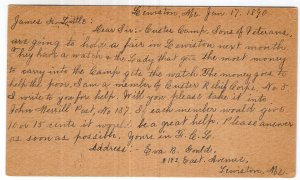 Lewiston, Me. Jan 17. 1890
James H. Little:
Dear Sir:- Custer Camp, Sons of Veterans,
are going to hold a fair in Lewiston next month
They have a watch & the Lady that gets the most money
to carry into the Camp gets the watch. The money goes to
help the poor. I am a member of Custer Relief Corps. No 5
I write to you for help. Will you please take it into
John Merrill Post, No 157. If each member would give 5
10 or 15 cents it would be a great help. Please answer
as soon as possible. Yours in F. C. L.
Address:- Eva B. Gould
#182 East Avenue,
Lewiston, Me.